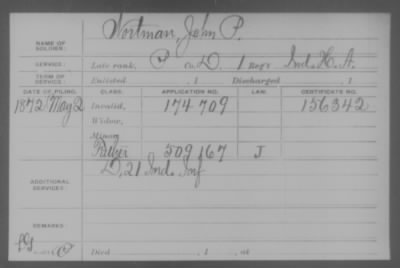 NAME OF SOLDIER: Wortman, John P.
SERVICE: Late rank, P Co. D, 1 Reg't Ind. H. A.
TERM OF SERVICE: Enlisted , 1 Discharged , 1
DATE OF FILING. CLASS. APPLICATION NO. LAW. CERTIFICATE NO.
1872 May 2 Invalid, 174 709 156342
Widow,
Minor,
Father 509 167 J
ADDITIONAL SERVICES: D, 21 Ind. Inf
REMARKS:
Died , 1 , at